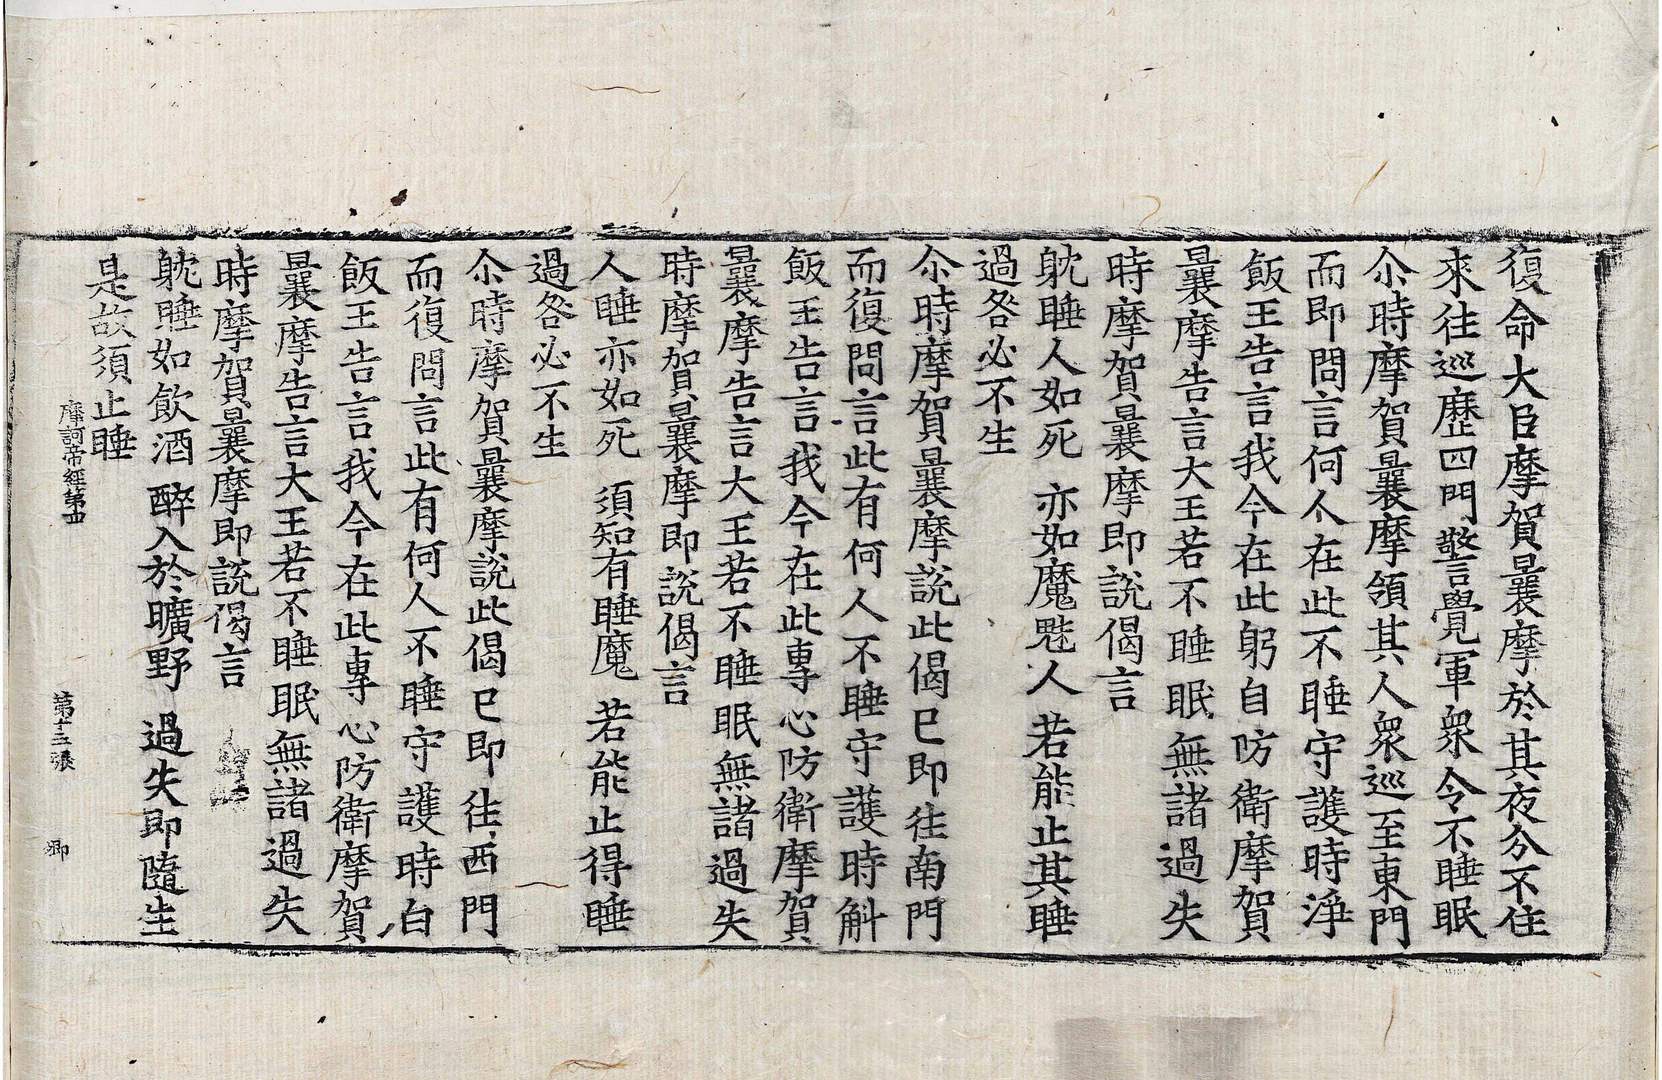 復命大臣摩賀曩摩於其夜分不住
來往巡歷四門警覺軍衆令不睡眠
尒時摩賀曩摩領其人衆巡至東門
而即問言何人在此不睡守護時淨
飯王告言我今在此躬自防衛摩賀
曩摩告言大王若不睡眠無諸過失
時摩賀曩摩即說偈言
躭睡人如死　亦如魔魅人　若能止其睡
過咎必不生
尒時摩賀曩摩說此偈已即往南門
而復問言此有何人不睡守護時斛
飯王告言我今在此專心防衛摩賀
曩摩告言大王若不睡眠無諸過失
時摩賀曩摩即說偈言
人睡亦如死　須知有睡魔　若能止得睡
過咎必不生
尒時摩賀曩摩說此偈已即往西門
而復問言此有何人不睡守護時白
飯王告言我今在此專心防衛摩賀
曩摩告言大王若不睡眠無諸過失
時摩賀曩摩即說偈言
躭睡如飲酒　醉入於曠野　過失即隨生
是故須止睡
摩訶帝經第四　第十三張　卿